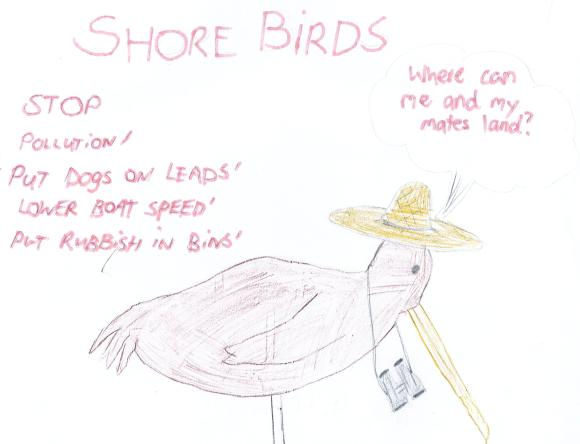 SHORE BIRDS
Where can
me and my
mates land?
STOP
POLLUTION!
PUT DOGS ON LEADS'
LOWER BOAT SPEED'
PUT RUBBISH in BINS'